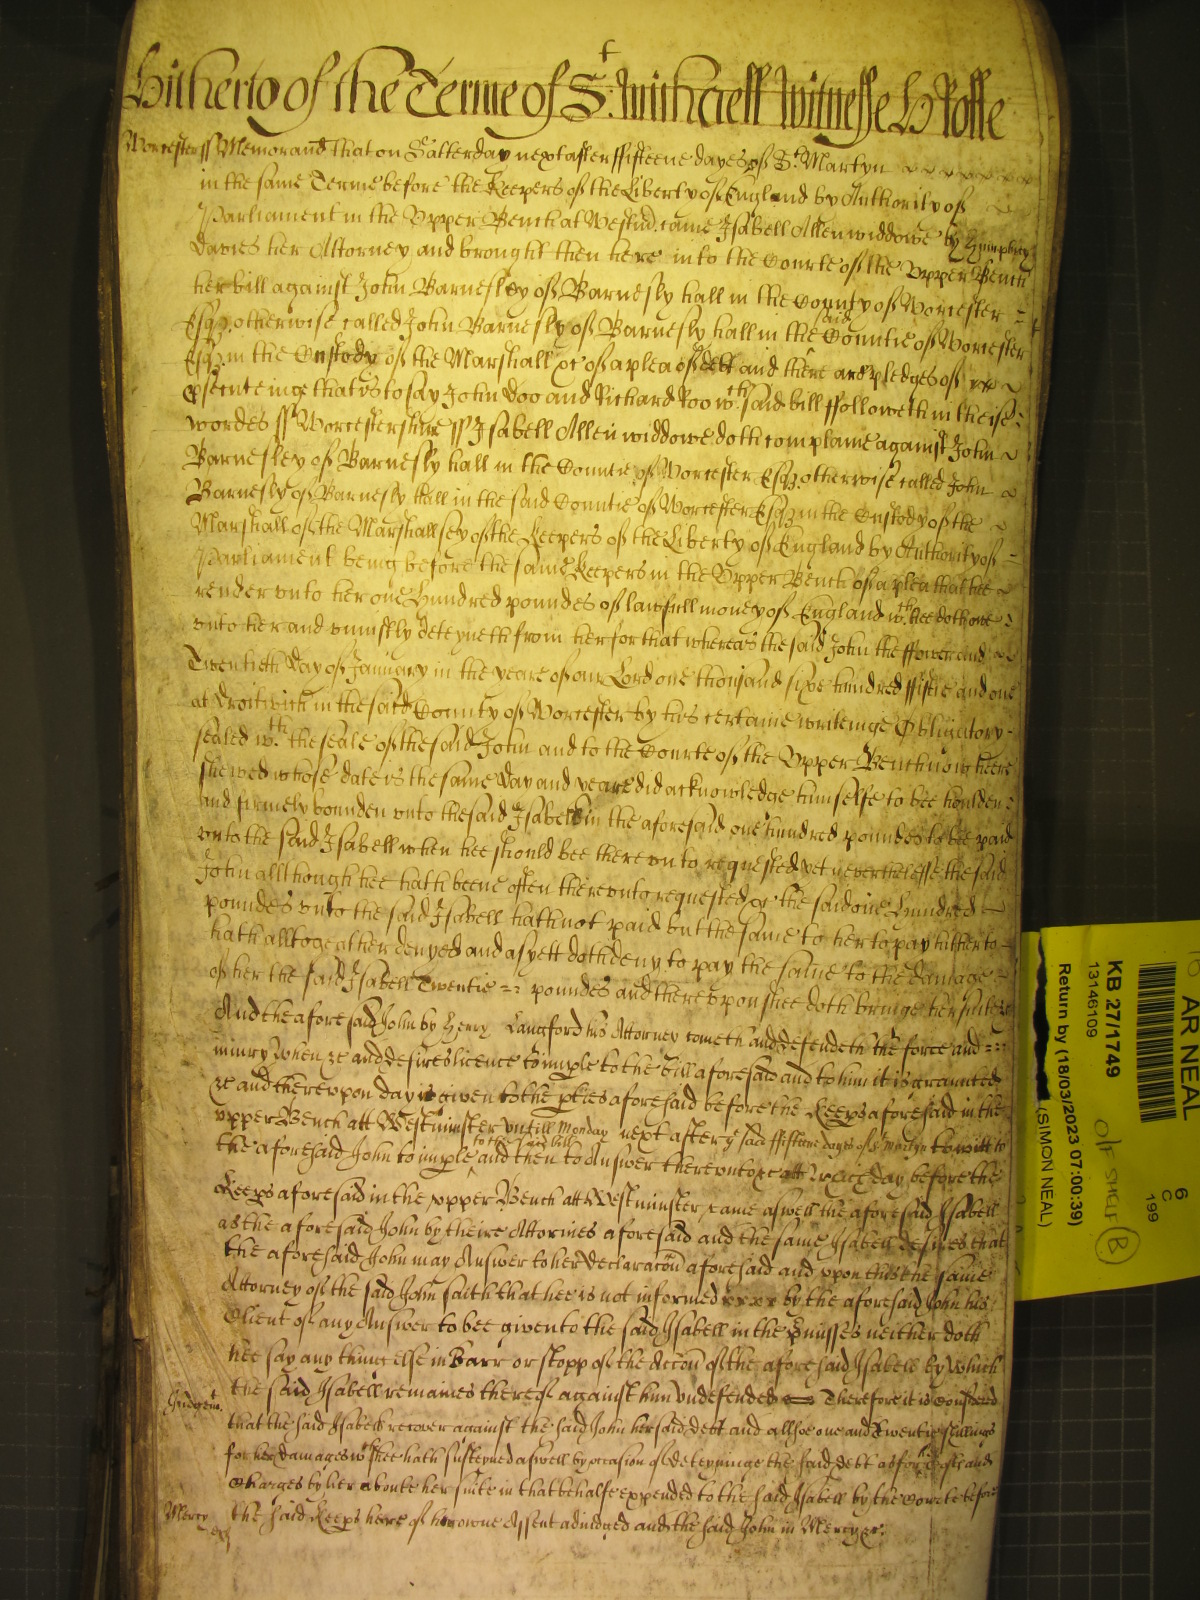 Hitherto of the Terme of St. Michaell Witnesse H Rolle
Worcester ss Memorand That on Satterday next after fifteene dayes of St. Martyn
in the same Terme before the Keepers of the Liberty of England by Authority of
Parliament in the Upper Bench at Westm. came Isabell Allen widdowe by Humphrey
Davies her Attorney and brought then here into the Courte of the Upper Bench
her bill against John Barnesley of Barnesly hall in the County of Worcester
Esqr. otherwise called John Barnesly of Barnesly hall in the said Countie of Worcester
Esqr. in the Custody of the Marshall &c of a plea of debt and there are pledges of
psecuteinge that is to say John Doo and Richard Roo wch. said bill ffolloweth in theise
wordes ss Worcestershire ss Isabell Allen widdowe doth complaine against John
Barnesley of Barnesly hall in the Countie of Worcester Esqr. otherwise called John
Barnesly of Barnesly Hall in the said Countie of Worcester Esqr in the Custody of the
Marshall of the Marshallsey of the Keepers of the Liberty of England by Authority of
Parliament being before the same Keepers in the Upper Bench of a plea that hee
render unto her one Hundred poundes of lawfull money of England wch. hee doth owe
unto her and uniustly deteyneth from her for that whereas the said John the ffower and
Twentieth day of January in the yeare of our Lord one thousand sixe hundred ffiftie and one
at Droitwich in the said County of Worcester by his certaine writeinge Obligatory
sealed wth. the seale of the said John and to the Courte of the Upper Bench now heere
shewed whose date is the same day and yeare did acknowledge himselfe to bee houlden
and firmely bounden unto the said Isabell in the aforesaid one hundred poundes to bee paid
unto the said Isabell when hee should bee thereunto requested yet neverthelesse the said
John allthough hee hath beene often thereunto requested &c the said one Hundred
poundes unto the said Isabell hath not paid but the same to her to pay hitherto
hath alltogeather denyed and as yett doth deny to pay the same to the damage
of her the said Isabell Twentie poundes and thereupon shee doth bringe her suite &c
And the aforesaid John by Henry Langford his Attorney cometh and defendeth the force and
iniury when &c and desires licence to imple to the bill aforesaid and to him it is graunted
&c and thereupon day is given to the pties aforesaid before the Keeps aforesaid in the
upper Bench att Westminster untill Monday next after ye said ffifteene dayes of St Martyn to witt to
the aforesaid John to imple to the said bill and then to Answer thereunto &c att which day before the
Keeps aforesaid in the upper Bench att Westminster came aswell the aforesaid Isabell
as the aforesaid John by theire Attornies aforesaid and the same Isabell desires that
the aforesaid John may Answer to her declaracon aforesaid and upon this the same
Attorney of the said John saith that hee is not informed by the aforesaid John his
Client of any Answer to bee given to the said Isabell in the pmisses neither doth
hee say any thing else in Barr or stopp of the accon of the aforesaid Isabell by which
the said Isabell remaines thereof against him undefended Therefore it is considered
Iudgem.
that the said Isabell recover against the said John her said debt and allsoe one and twentie shillings
for her damages wch shee hath susteyned aswell by occasion of deteyninge the said debt as for her costs and
Charges by her aboute her suite in that behalfe expended to the said Isabell by the Courte before
Mercy
the said Keeps heere of her owne Assent adiudged and the said John in Mercy &c.
AR NEAL
KB 27/1749
13146109
Return by (18/03/2023 07:00:39)
(SIMON NEAL)
O/F SHELF B
6
C
199